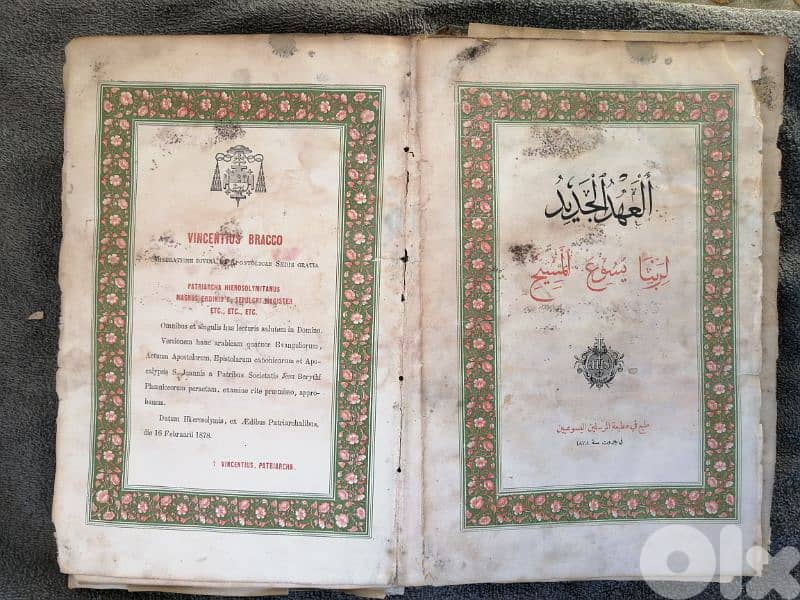 VINCENTIUS BRACCO
MISERATIONE DIVINA ET APOSTOLICAE SEDIS GRATIA
PATRIARCHA HIEROSOLYMITANUS
MAGNUS ORDINIS S. SEPULCRI MAGISTER
ETC., ETC., ETC.
Omnibus et singulis has lecturis salutem in Domino.
Versionem hanc arabicam quatuor Evangeliorum,
Actuum Apostolorum, Epistolarum canonicarum et Apo-
calypsis S. Joannis a Patribus Societatis Jesu Berythi
Phoeniceorum peractam, examine rite praemisso, appro-
bamus.
Datum Hierosolymis, ex Ædibus Patriarchalibus,
die 16 Februarii 1878.
† VINCENTIUS, PATRIARCHA.
أَلْعَهْدُ ٱلْجَدِيدُ
لِرَبِّنَا يَسُوعَ ٱلْمَسِيحِ
IHS
طبع في مطبعة المرسلين اليسوعيين
في بيروت سنة ١٨٧٨
olx